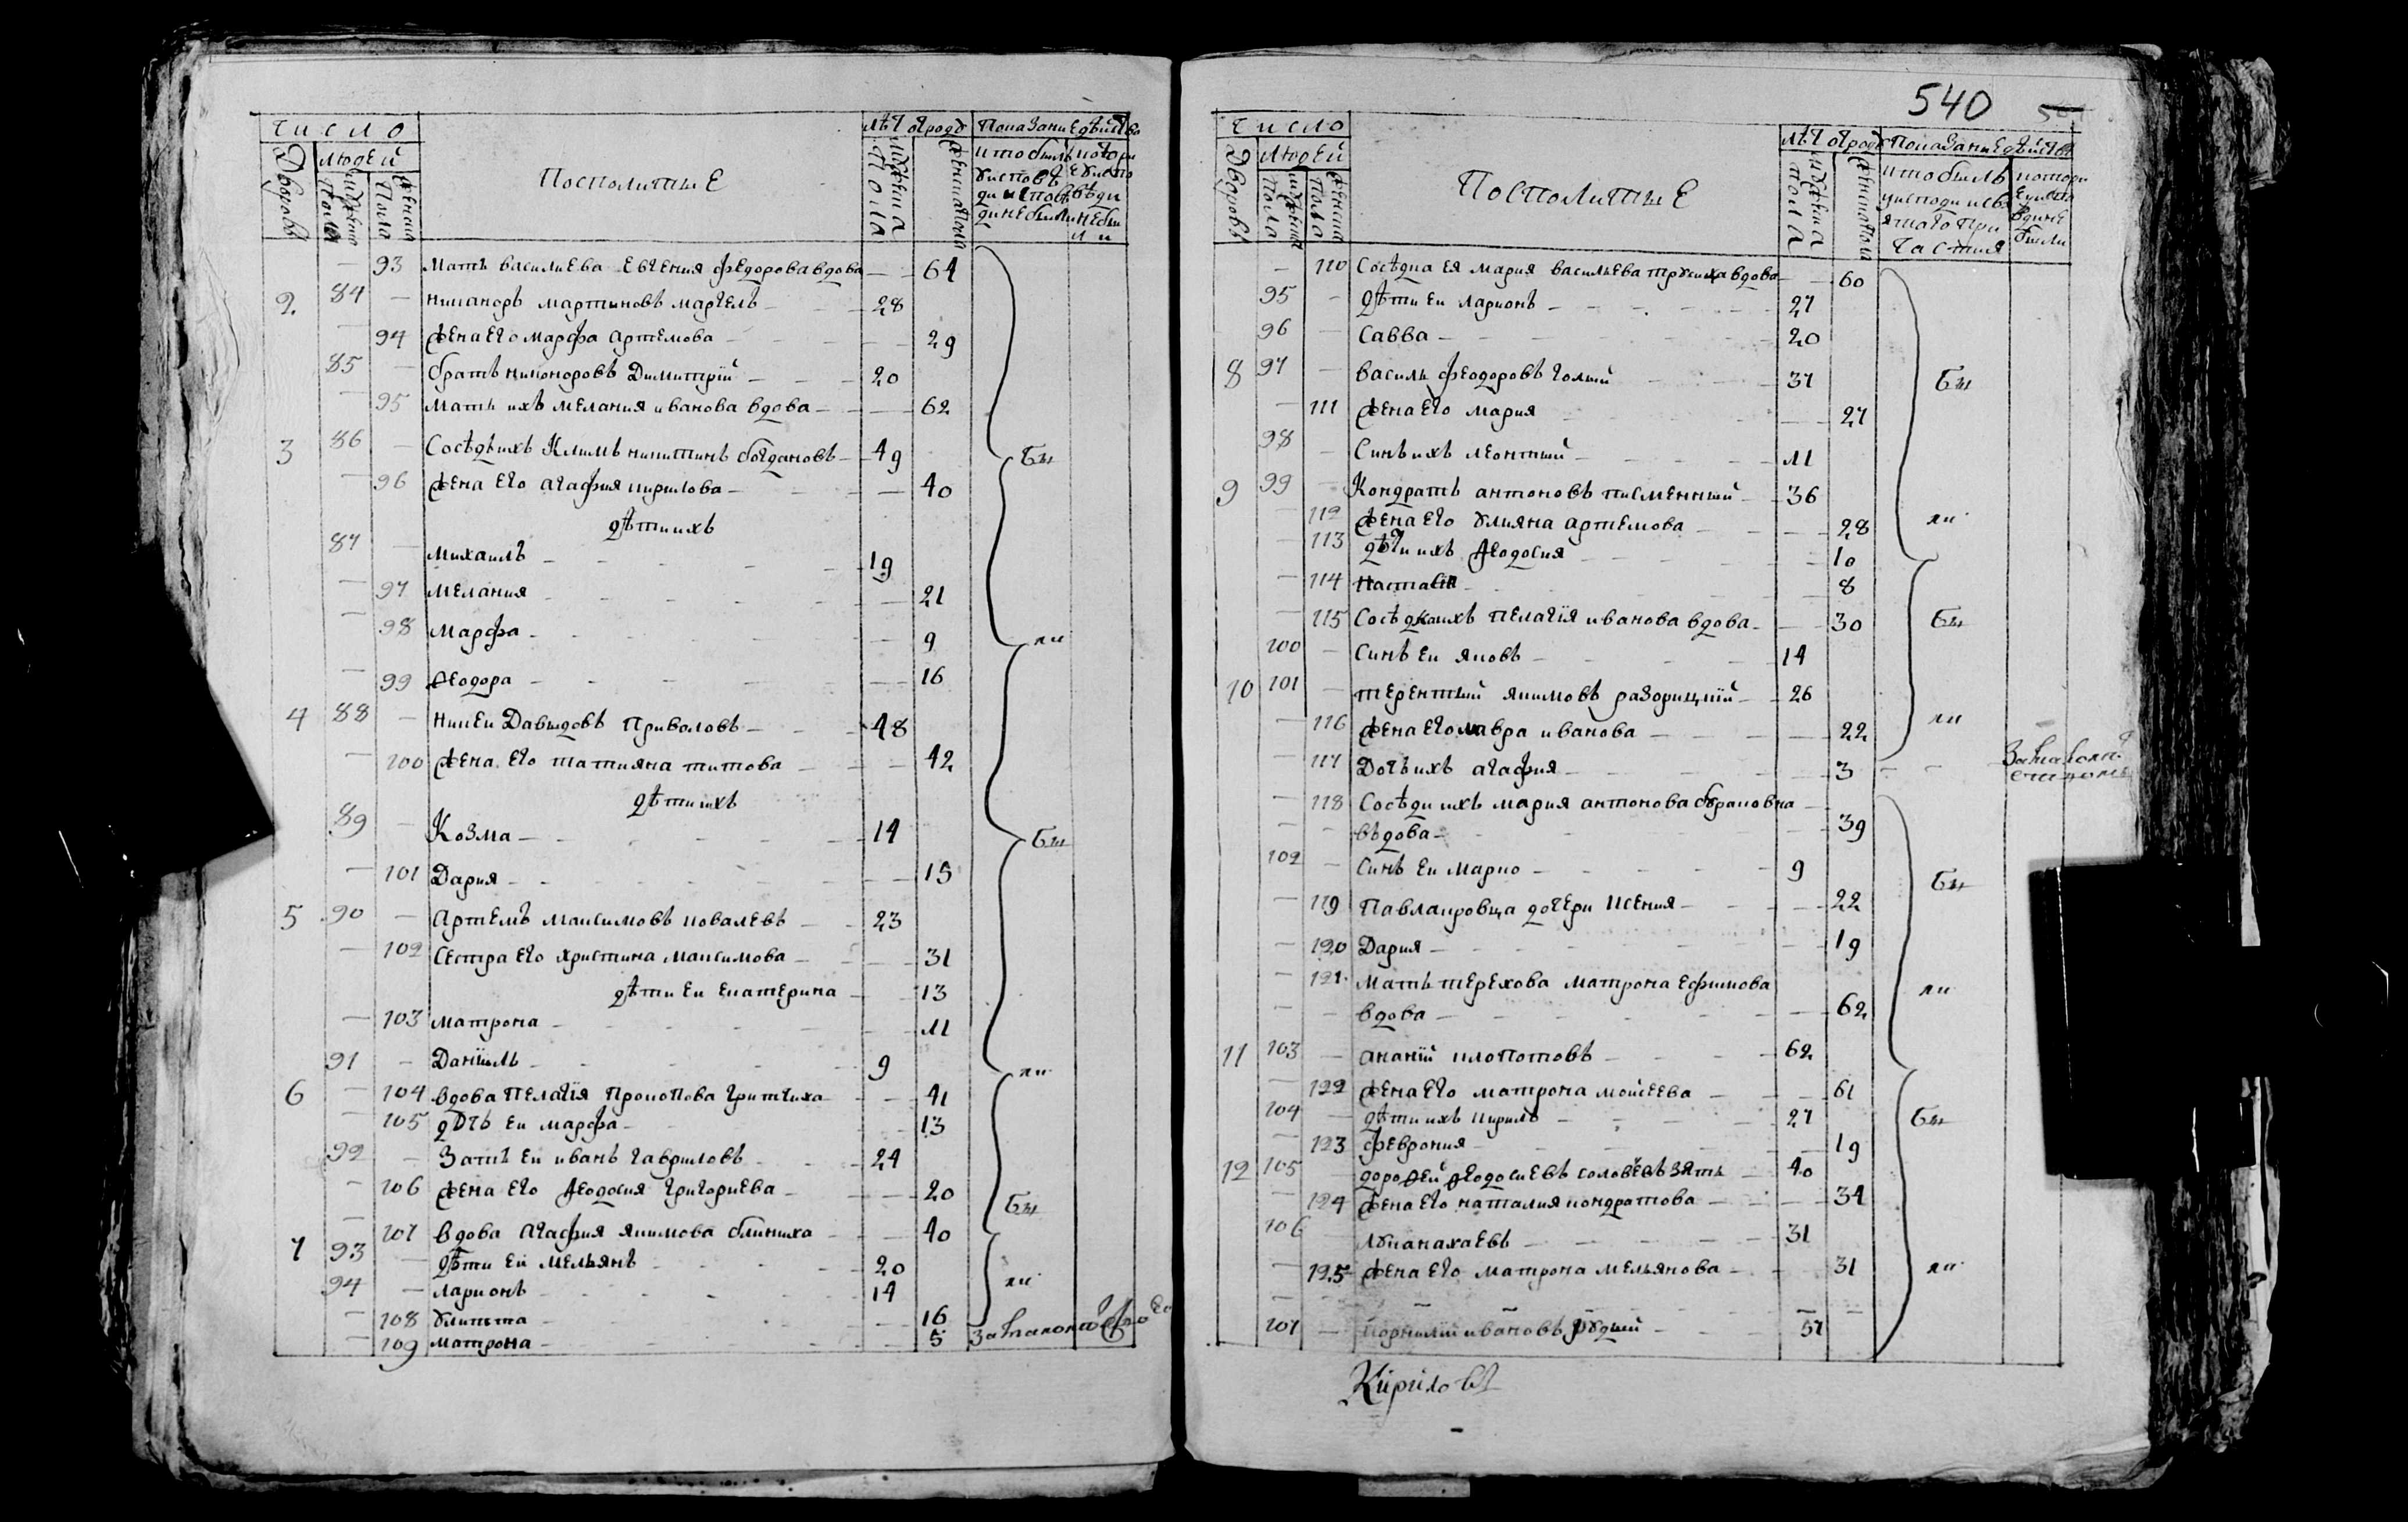 Число
Людей
Дворовъ
мужеска Пола
женска Пола
Посполитые
лѣт отроду
мужеска Пола
женска Пола
Показание
93 Мать василиева Евгения федорова вдова 64
2 84 никаноръ мартыновъ маргель 28
94 жена его марфа артемова 29
85 братъ никоноровъ Димитрїй 20
95 Мать ихъ мелания иванова вдова 62
3 86 Сосѣдъ ихъ Климъ никитинъ богдановъ 49
96 жена его агафия кирилова 40
дѣти ихъ
87 михаилъ 19
97 мелания 21
98 марфа 9
99 Ѳеодора 16
4 88 никей Давыдовъ Приваловъ 48
100 жена его татияна титова 42
дѣти ихъ
89 Козма 14
101 Дария 15
5 90 Артемъ максимовъ ковалевъ 23
102 сестра его христина максимова 31
дѣти ей екатерина 13
103 матрона 11
91 Данїилъ 9
6 104 вдова Пелагїя Прокопова гритчиха 41
105 дочъ ей марфа 13
92 Зать ей иванъ гавриловъ 24
106 жена его Ѳеодосия григориева 20
107 вдова агафия якимова блиниха 40
7 93 дѣти ей мельянъ 20
94 ларионъ 14
108 улита 16
109 матрона 5
Бы
ли
Бы
ли
Бы
ли
540
Число
Людей
Дворовъ
мужеска Пола
женска Пола
Посполитые
лѣт отроду
мужеска пола
женска пола
Показание
кто былъ
у исповеди и свя
ятаго при
частия
110 Сосѣдка ея мария васильева вдова 60
95 дѣти ей ларионъ 27
96 савва 20
8 97 василь феодоровъ голый 37
111 жена его мария 27
98 Синъ ихъ леонтий 11
9 99 Кондратъ антоновъ писменный 36
112 жена его улияна артемова 28
113 дѣти ихъ Ѳеодосия 10
114 Наталия 8
115 Сосѣдка ихъ пелагїя иванова вдова 30
100 Синъ ей яковъ 14
10 101 терентий якимовъ разорицкий 26
116 жена его мавра иванова 22
117 Дочъ ихъ агафия 3
118 Сосѣди ихъ мария антонова
въдова 39
102 синъ ей марко 9
119 дочери ксения 22
120 Дария 19
121 мать терехова матрона ефимова
вдова 62
11 103 ананїй клопотовъ 62
122 жена его матрона моисеева 61
104 дѣти ихъ кирилъ 27
123 феврония 19
12 105 дорофей Ѳеодосиевъ соловьевъ зять 40
124 жена его наталия кондратова 34
106 31
125 жена его матрона мельянова 31
107 корнилий ивановъ рудый 57
Бы
ли
Бы
ли
Бы
ли
Бы
ли
Кирилов